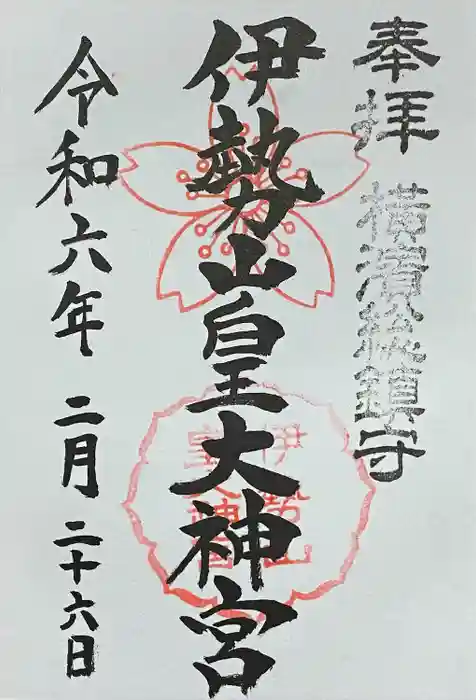 奉拝 横濱総鎮守
伊勢山皇大神宮
伊勢山
皇大神宮
令和六年 二月 二十六日